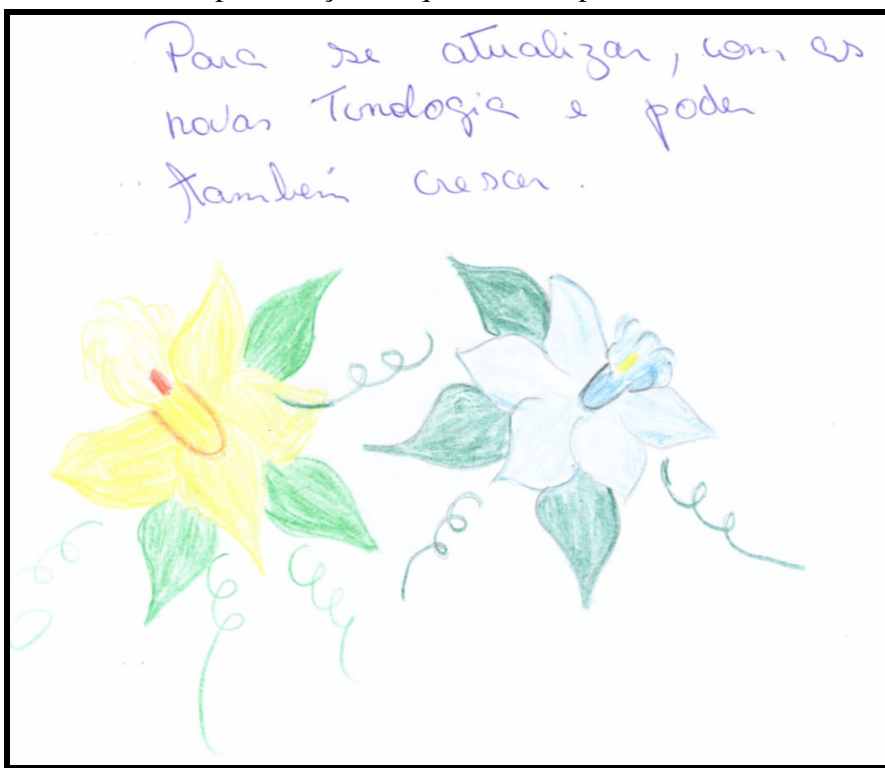 Para se atualizar, com as
novas Tendologia e poder
também crescer.